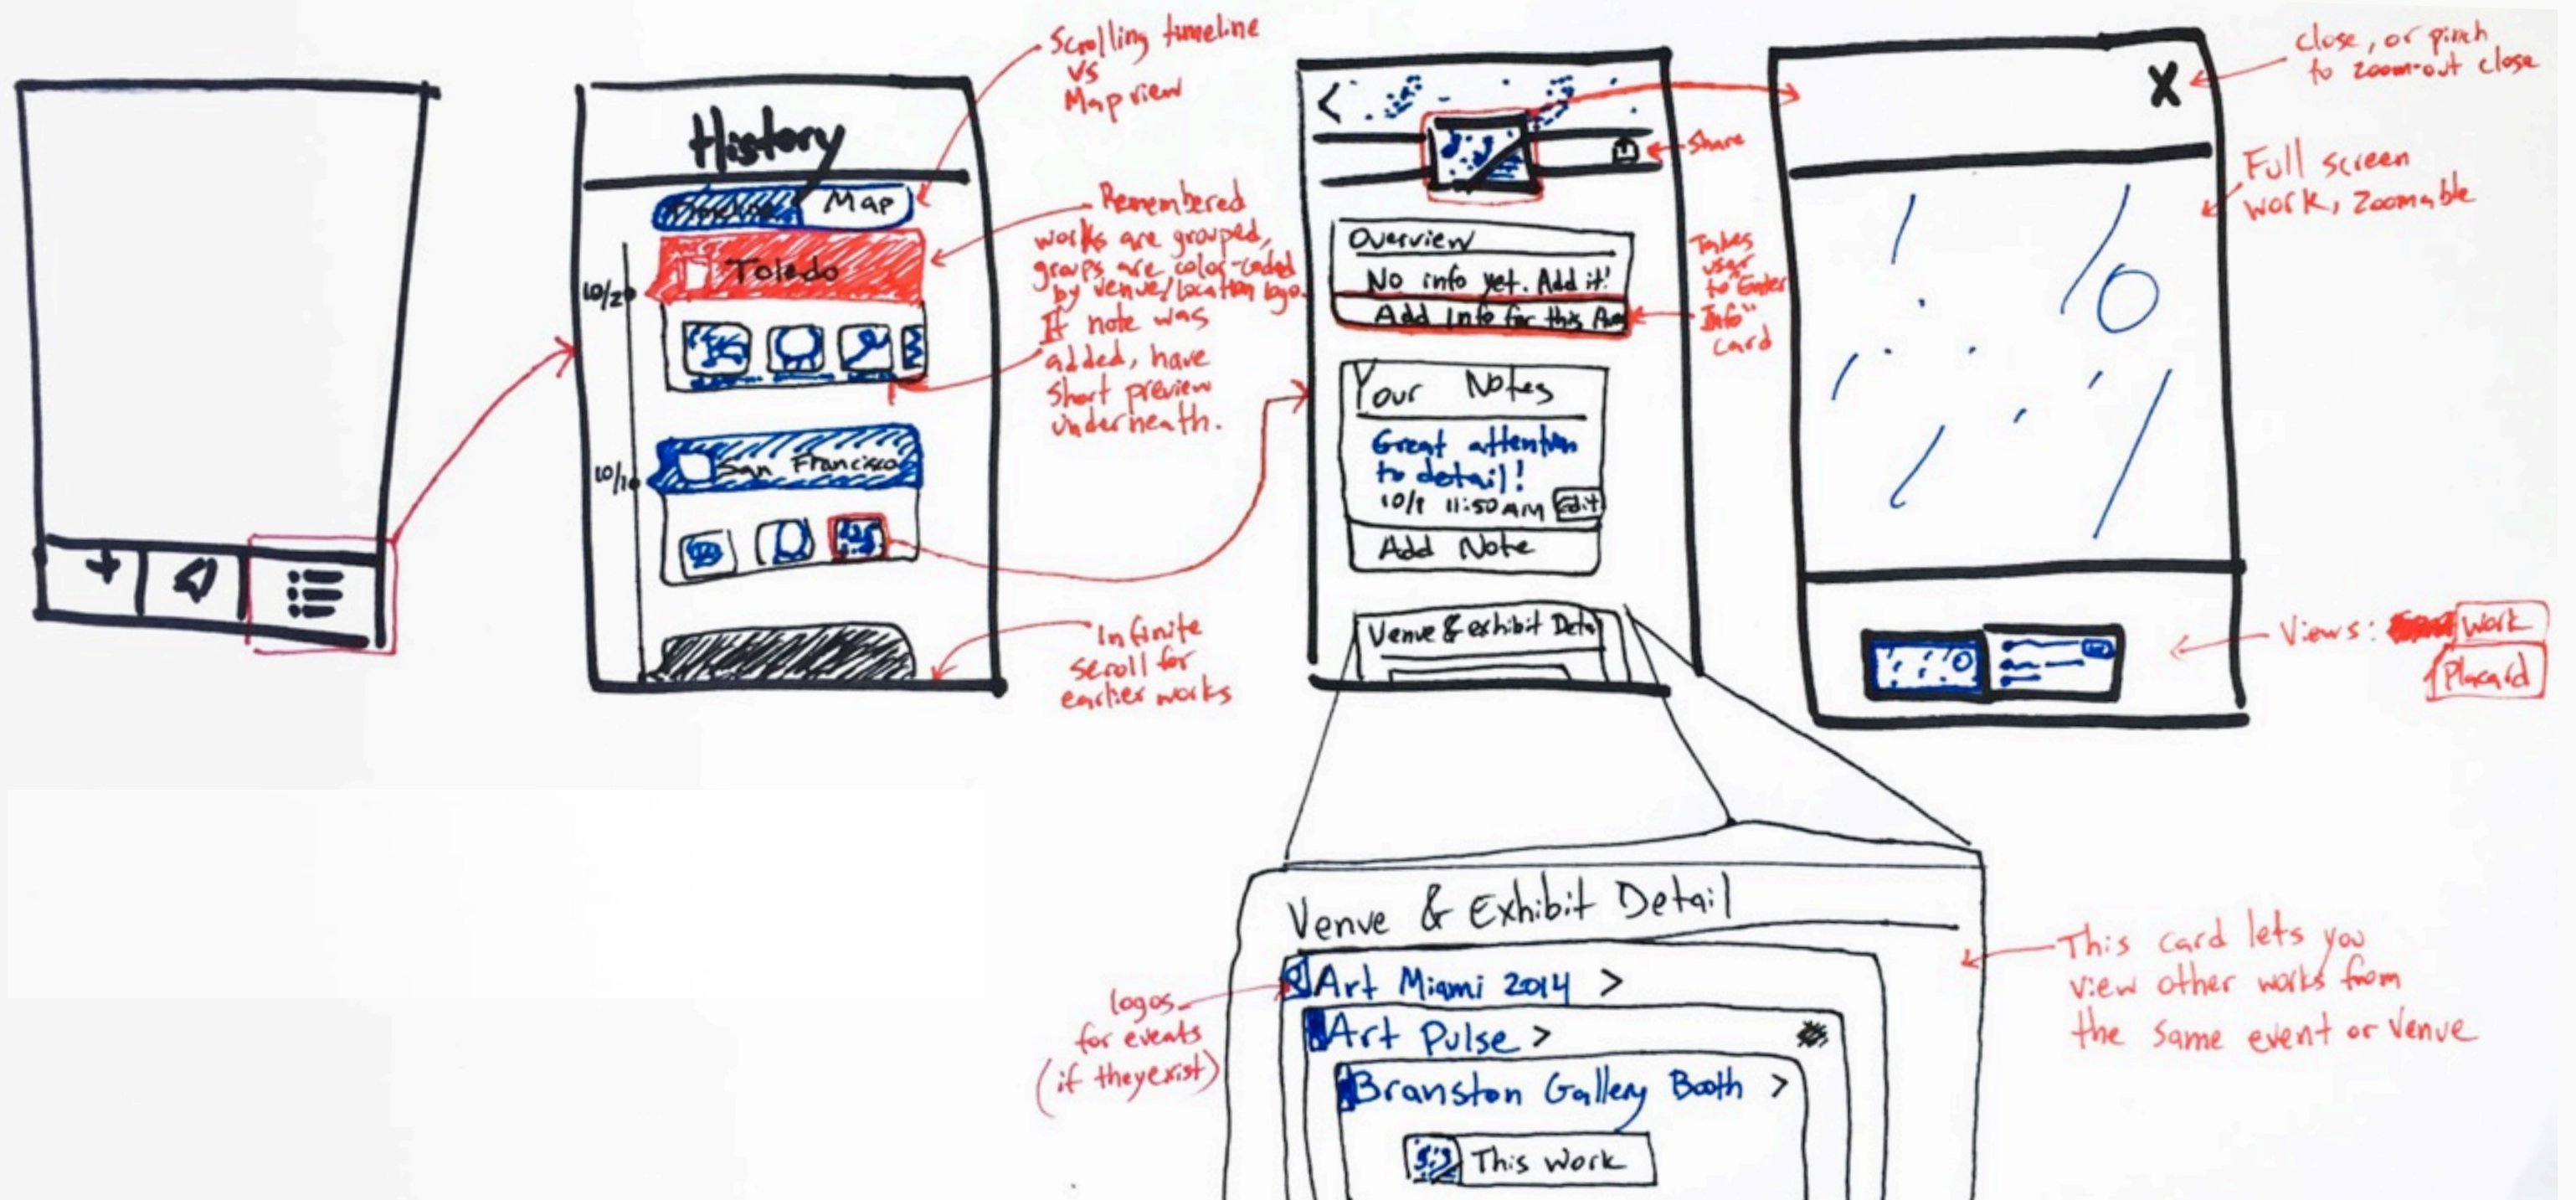 Scrolling timeline
vs
Map view
History
Timeline Map
10/2
Toledo
Remembered
works are grouped,
groups are color-coded
by venue/location logo.
If note was
added, have
short preview
underneath.
10/1
San Francisco
Infinite
scroll for
earlier works
<
Share
Overview
No info yet. Add it!
Add Info for this
Takes
user
to "Enter
Info"
card
Your Notes
Great attention
to detail!
10/1 11:50 AM Edit
Add Note
Venue & exhibit Deta
X
close, or pinch
to zoom-out close
Full screen
work, zoomable
Views: Work
Placard
Venue & Exhibit Detail
Art Miami 2014 >
Art Pulse >
Branston Gallery Booth >
This work
logos
for events
(if they exist)
This card lets you
view other works from
the same event or venue